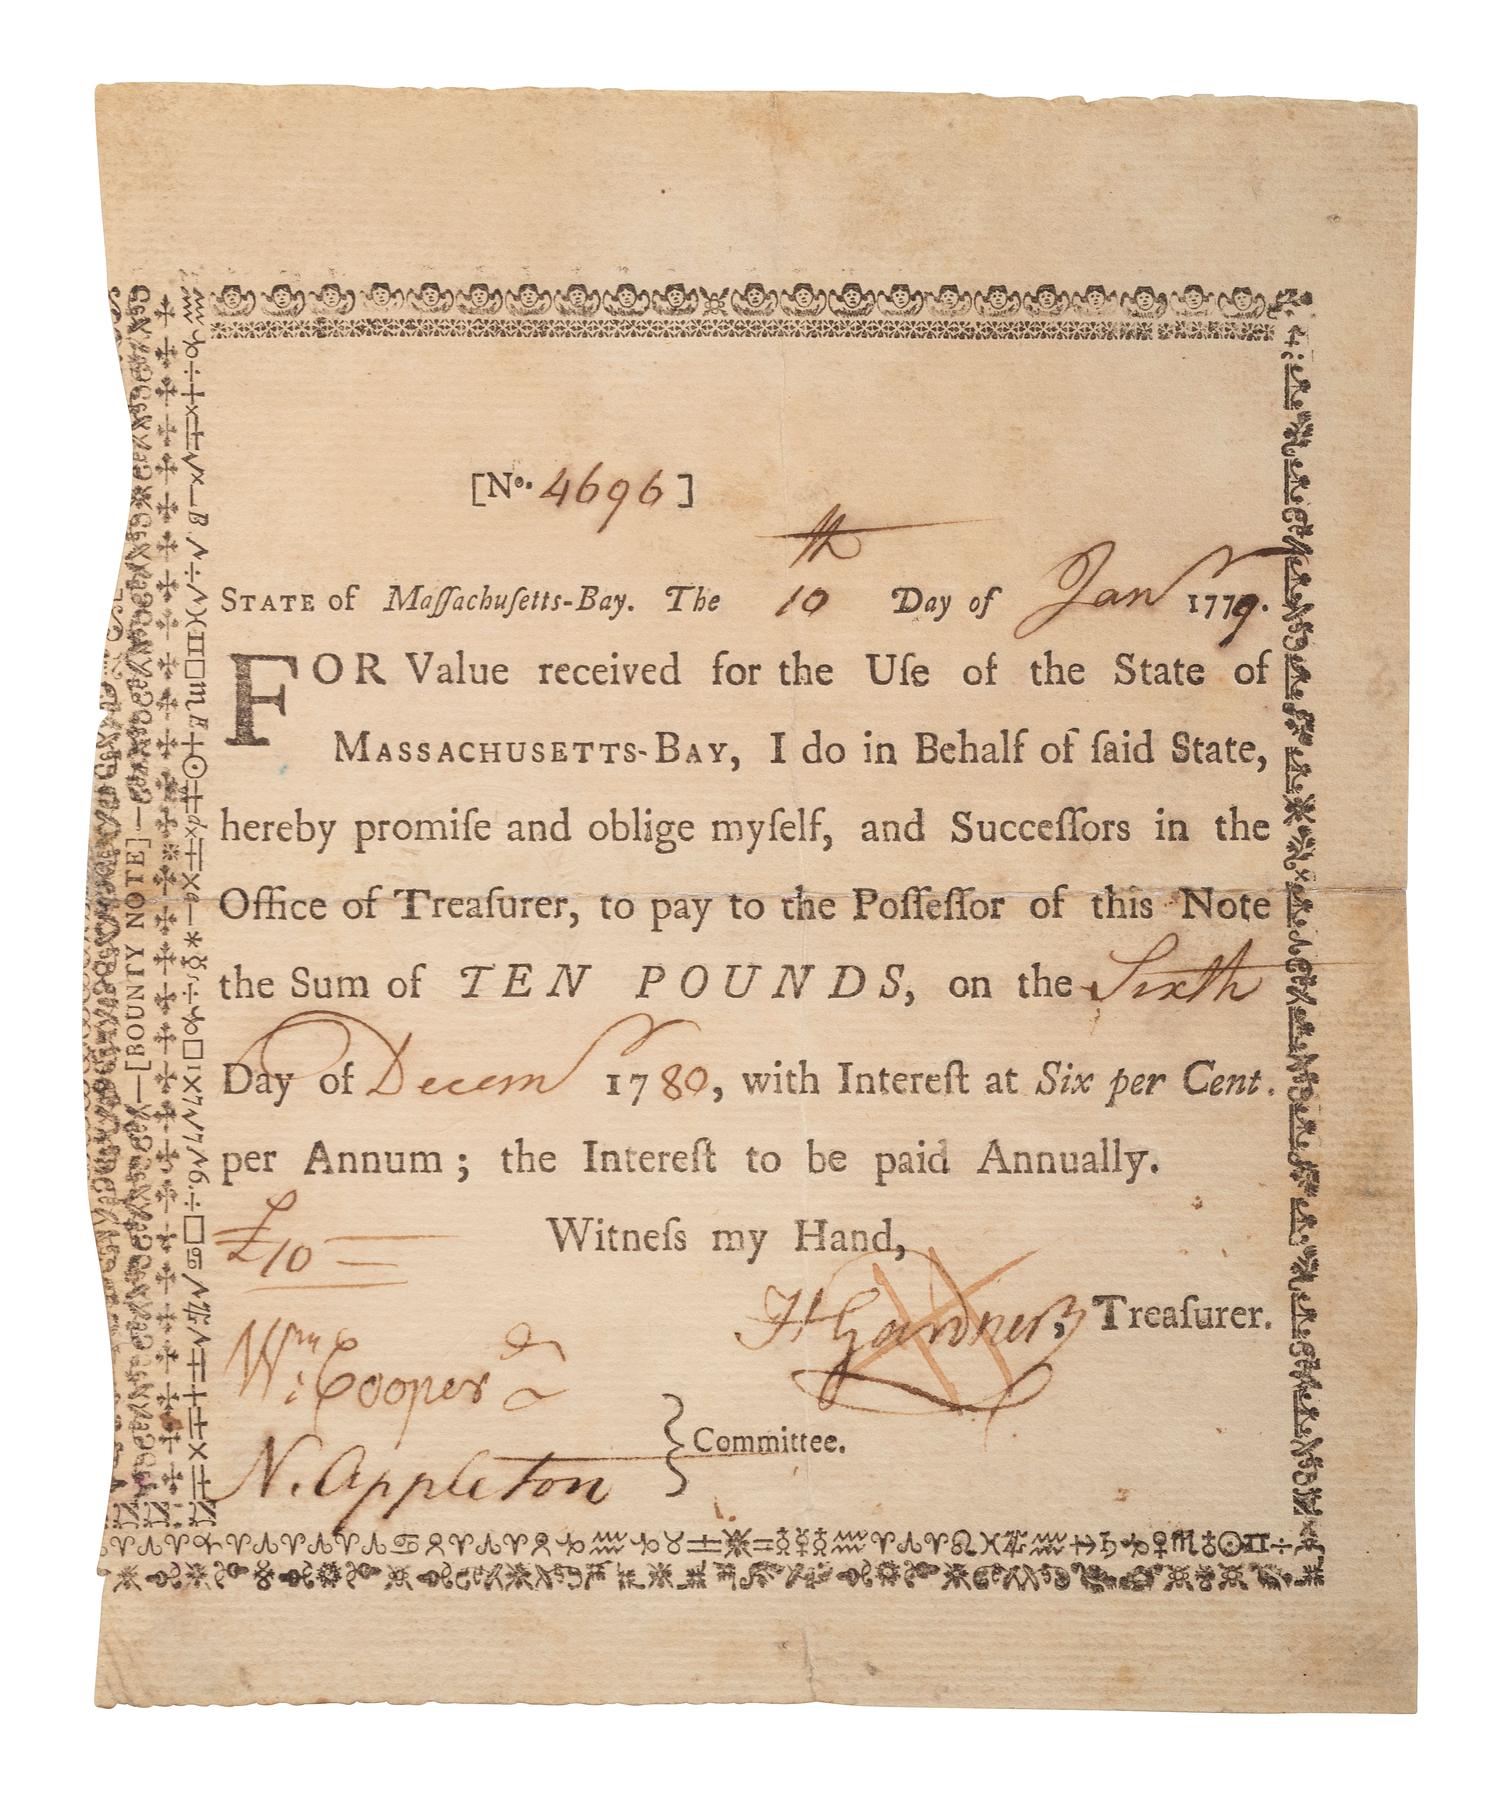 [BOUNTY NOTE]
[No. 4696]
STATE of Maſſachuſetts-Bay. The 10th Day of Janr 1779.
FOR Value received for the Uſe of the State of
MASSACHUSETTS-BAY, I do in Behalf of ſaid State,
hereby promiſe and oblige myſelf, and Succeſſors in the
Office of Treaſurer, to pay to the Poſſeſſor of this Note
the Sum of TEN POUNDS, on the Sixth
Day of Decemr 1780, with Intereſt at Six per Cent.
per Annum; the Intereſt to be paid Annually.
£10
Witneſs my Hand,
H Gardner, Treaſurer.
Wm: Cooper
N. Appleton } Committee.